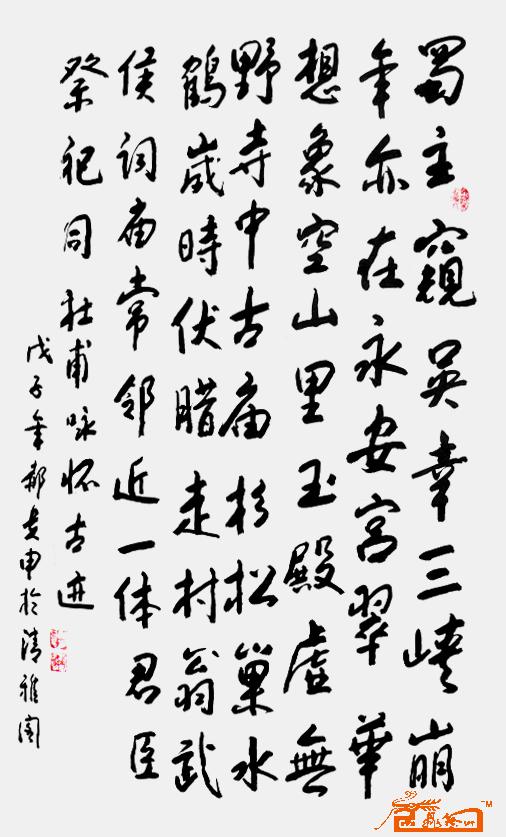 蜀主窺吴幸三峡崩
年亦在永安宫翠華
想象空山里玉殿虚無
野寺中古庙杉松巢水
鶴歲時伏腊走村翁武
侯词庙常邻近一体君臣
祭祀同 杜甫咏怀古迹
戊子年郝 申於清雅阁